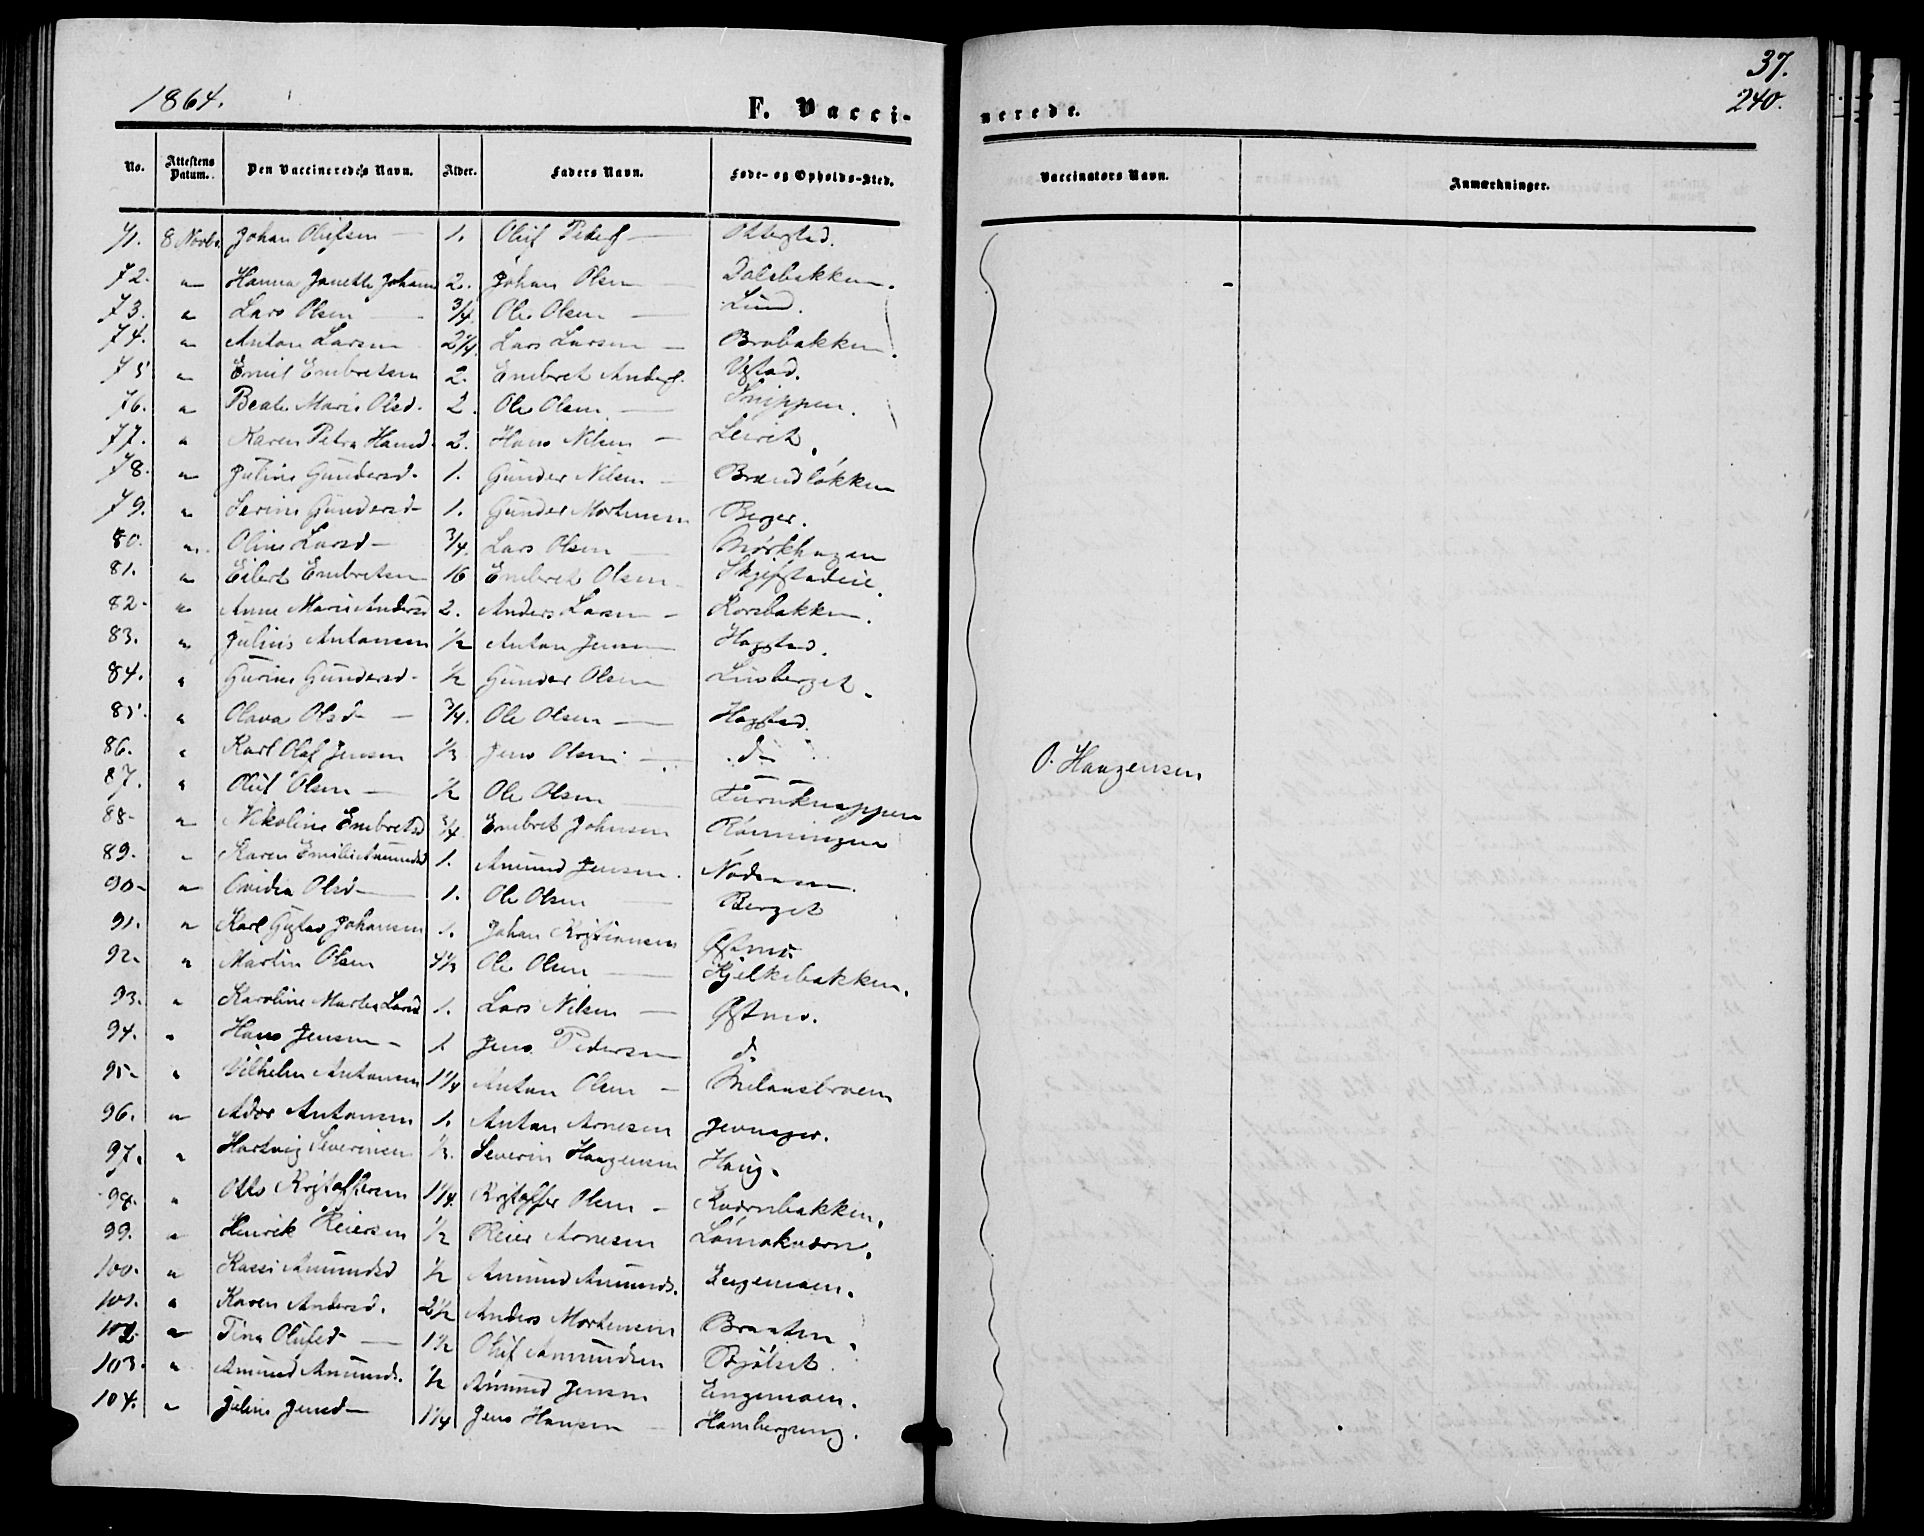 1864.
F. Vacci-
nerede.
37.
240.
No. Attestens Datum. Den Vaccineredes Navn. Alder. Faders Navn. Føde- og Opholds-Sted. Vaccinators Navn. Anmærkninger.
71. 8 Novbr Johan Olufsen — 1. Oluf Peders — Otterstad.
72. " Hanna Janette Johans 2. Johan Olsen — Dalsbakken.
73. " Lars Olsen — 3/4. Ole Olsen — Lund.
74. " Anton Larsen 2 1/4. Lars Larsen — Brobakken.
75 " Emil Embretsen 2. Embret Anders. Ugstad.
76. " Beate Marie Olsd. 2. Ole Olsen — Snippen.
77. " Karen Petra Hansd. 2. Hans Nilsen — Leiret.
78. " Juline Gundersd. 1. Gunder Nilsen — Brændløkken
79. " Serine Gundersd 1. Gunder Mortensen Berger.
80. " Oline Larsd — 3/4. Lars Olsen — Mørkhagen
81. " Eilert Embretsen 16 Embret Olsen — Skjefstadeie.
82. " Anne Marie Andersd 2. Anders Larsen — Korsbakken.
83. " Julius Antonsen 1/2 Anton Jensen Hagstad.
84. " Gurine Gundersd. 1/2 Gunder Olsen Linberget.
85. " Olava Olsd — 3/4. Ole Olsen — Hagstad.
86. " Karl Olaf Jensen 1/3 Jens Olsen — do
87. " Oluf Olsen — 1/2 Ole Olsen — Furuknappen
88. " Nikoline Embretsd 3/4. Embret Johnsen Rønningen
89. " Karen Emilie Amundsd 1. Amund Jensen.
90. " Ovidia Olsd — 1. Ole Olsen — Berget
91. " Karl Gustav Johansen 1. Johan Kristiansen Østmo.
92. " Martin Olsen 4 1/2 Ole Olsen — Kjelkebakken.
93. " Karoline Marthea Larsd 1. Lars Nilsen — Østmo.
94. " Hans Jensen — 1. Jens Pedersen do
95. " Vilhelm Antonsen 1 1/4 Anton Olsen —
96. " Ador Antonsen 1. Anton Arnesen
97. " Hartvig Severinsen 1/3. Severin Haagensen Haug.
98. " Otto Kristoffersen 1 1/4. Kristoffer Olsen — Kværnbakken.
99. " Henrik Reiersen 1/2 Reier Arnesen Lømokværn.
100. " Kaesi Amundsd 1/2 Amund Amunds. Engemoen.
101. " Karen Andersd. 2 1/2 Anders Mortensen Braaten.
102. " Tina Olufsd — 1 1/2 Oluf Amundsen Bjølset.
103. " Amund Amunds. 1/2 Amund Jensen Engemoen.
104. " Juline Jensd — 1 1/4 Jens Hansen — Hambergeng.
O. Haagensen